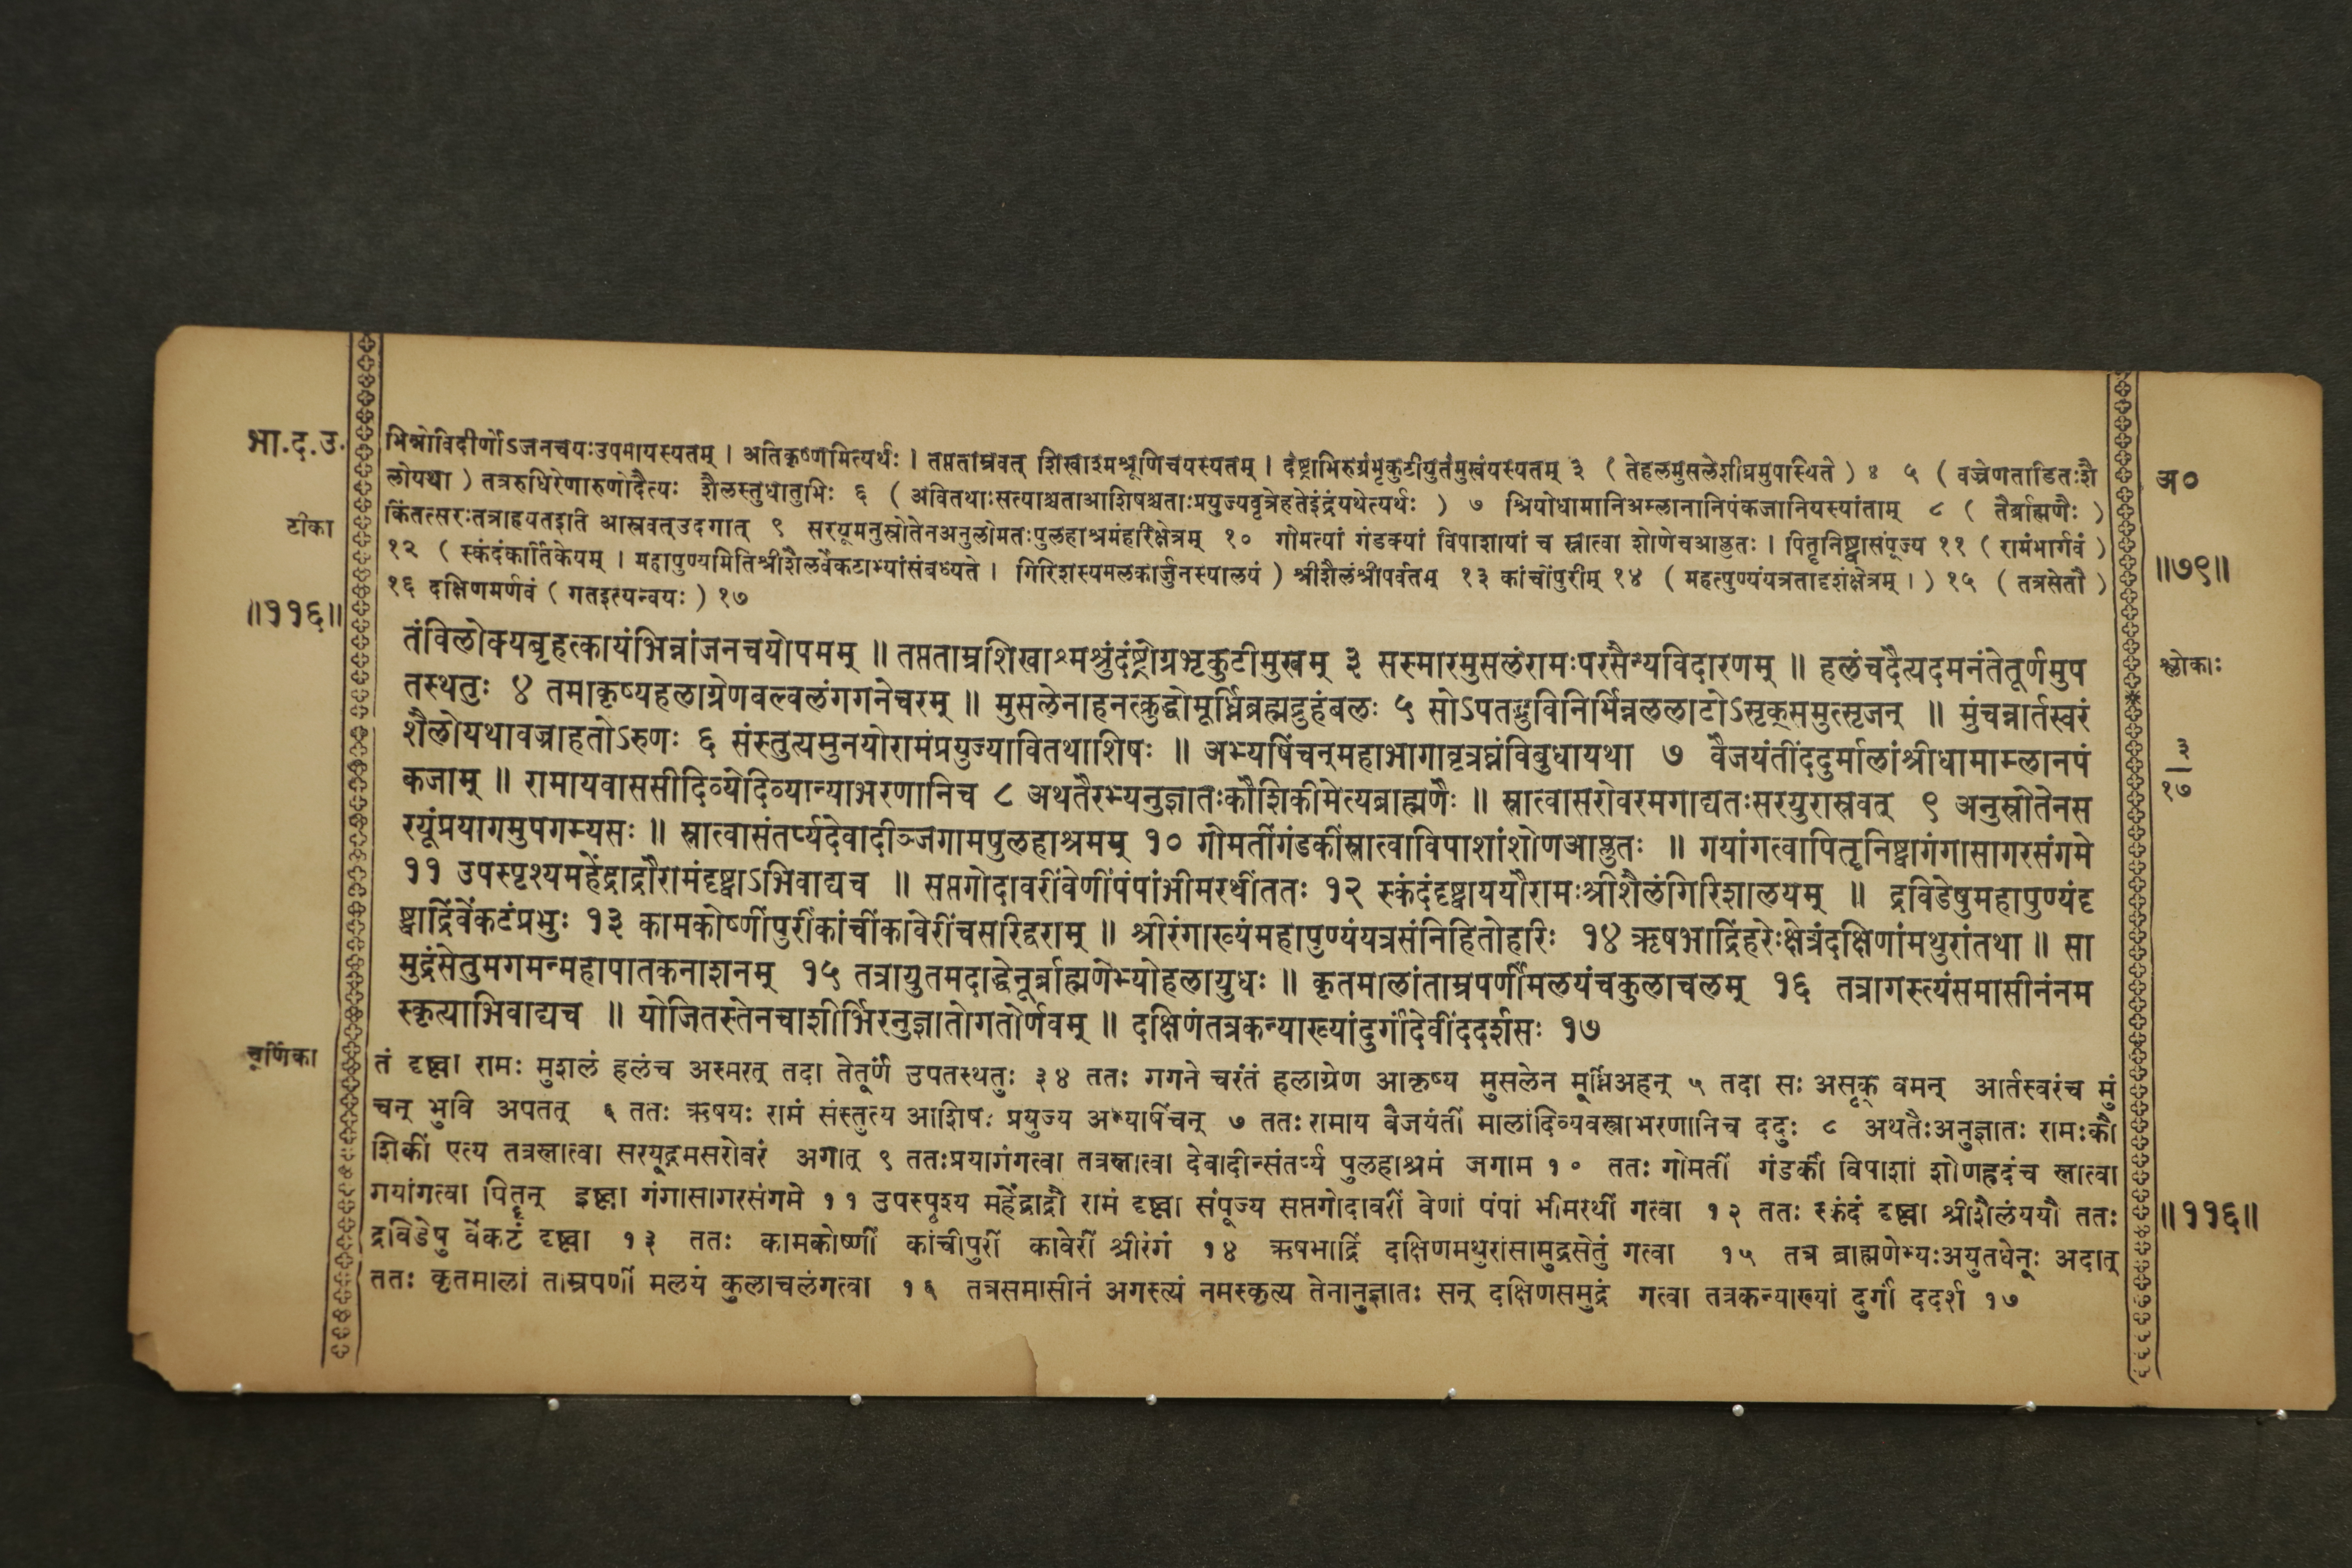 भा.द.उ.
भिन्नोविदीर्णोऽजनचयःउपमायस्यतम् । अतिकृष्णमित्यर्थः । तप्तताम्रवत् शिखाश्मश्रूणिचयस्यतम् । दंष्ट्राभिरुग्रंभृकुटीयुतंमुखंयस्यतम् ३ ( तेहलमुसलेशीघ्रमुपास्थिते ) ४ ५ ( वज्रेणताडितःशै
लोयथा ) तत्ररुधिरेणारुणोदैत्यः शैलस्तुधातुभिः ६ ( अवितथाःसत्याश्चताआशिषश्चताःप्रयुज्यवृत्रेहतेइंद्रंयथेत्यर्थः ) ७ श्रियोधामानिअम्लानानिपंकजानियस्यांताम् ८ ( तैर्ब्राह्मणैः )
टीका
किंतत्सरःतत्राहयतइति आस्रवत्उदगात् ९ सरयूमनुस्रोतेनअनुलोमतःपुलहाश्रमंहरिक्षेत्रम् १० गोमत्यां गंडक्यां विपाशायां च स्नात्वा शोणेचआप्लुतः । पितॄनिष्ट्वासंपूज्य ११ ( रामंभार्गवं )
१२ ( स्कंदंकार्तिकेयम् । महापुण्यमितिश्रीशैलवेंकटाभ्यांसंबध्यते । गिरिशस्यमलकार्जुनस्यालयं ) श्रीशैलंश्रीपर्वतम् १३ कांचींपुरीम् १४ ( महत्पुण्यंयत्रतादृशंक्षेत्रम् । ) १५ ( तत्रसेतौ )
१६ दक्षिणमर्णवं ( गतइत्यन्वयः ) १७
अ०
॥७९॥
॥११६॥
तंविलोक्यबृहत्कायंभिन्नांजनचयोपमम् ॥ तप्तताम्रशिखाश्मश्रुंदंष्ट्रोग्रभृकुटीमुखम् ३ सस्मारमुसलंरामःपरसैन्यविदारणम् ॥ हलंचदैत्यदमनंतेतूर्णमुप
तस्थतुः ४ तमाकृष्यहलाग्रेणवल्वलंगगनेचरम् ॥ मुसलेनाहनत्क्रुद्धोमूर्ध्निब्रह्मद्रुहंबलः ५ सोऽपतद्भुविनिर्भिन्नललाटोऽसृक्समुत्सृजन् ॥ मुंचन्नार्तस्वरं
शैलोयथावज्राहतोऽरुणः ६ संस्तुत्यमुनयोरामंप्रयुज्यावितथाशिषः ॥ अभ्यषिंचन्महाभागावृत्रघ्नंविबुधायथा ७ वैजयंतींददुर्मालांश्रीधामाम्लानपं
कजाम् ॥ रामायवाससीदिव्येदिव्यान्याभरणानिच ८ अथतैरभ्यनुज्ञातःकौशिकीमेत्यब्राह्मणैः ॥ स्नात्वासरोवरमगाद्यतःसरयुरास्रवत् ९ अनुस्रोतेनस
रयूंप्रयागमुपगम्यसः ॥ स्नात्वासंतर्प्यदेवादीञ्जगामपुलहाश्रमम् १० गोमतींगंडकींस्नात्वाविपाशांशोणआप्लुतः ॥ गयांगत्वापितॄनिष्ट्वागंगासागरसंगमे
११ उपस्पृश्यमहेंद्राद्रौरामंदृष्ट्वाऽभिवाद्यच ॥ सप्तगोदावरींवेणींपंपांभीमरथींततः १२ स्कंदंदृष्ट्वाययौरामःश्रीशैलंगिरिशालयम् ॥ द्रविडेषुमहापुण्यंदृ
ष्ट्वाद्रिंवेंकटंप्रभुः १३ कामकोष्णींपुरींकांचींकावेरींचसरिद्वराम् ॥ श्रीरंगाख्यंमहापुण्यंयत्रसंनिहितोहरिः १४ ऋषभाद्रिंहरेःक्षेत्रंदक्षिणांमथुरांतथा ॥ सा
मुद्रंसेतुमगमन्महापातकनाशनम् १५ तत्रायुतमदाद्धेनूर्ब्राह्मणेभ्योहलायुधः ॥ कृतमालांताम्रपर्णीमलयंचकुलाचलम् १६ तत्रागस्त्यंसमासीनंनम
स्कृत्याभिवाद्यच ॥ योजितस्तेनचाशीर्भिरनुज्ञातोगतोर्णवम् ॥ दक्षिणंतत्रकन्याख्यांदुर्गांदेवींददर्शसः १७
श्लोकाः
३
१७
चूर्णिका
तं दृष्ट्वा रामः मुशलं हलंच अस्मरत् तदा तेतूर्णं उपतस्थतुः ३४ ततः गगने चरंतं हलाग्रेण आकृष्य मुसलेन मूर्ध्निअहन् ५ तदा सः असृक् वमन् आर्तस्वरंच मुं
चन् भुवि अपतत् ६ ततः ऋषयः रामं संस्तुत्य आशिषः प्रयुज्य अभ्यषिंचन् ७ ततः रामाय वैजयंतीं मालांदिव्यवस्त्राभरणानिच ददुः ८ अथतैःअनुज्ञातः रामःकौ
शिकीं एत्य तत्रस्नात्वा सरयूद्गमसरोवरं अगात् ९ ततःप्रयागंगत्वा तत्रस्नात्वा देवादीन्संतर्प्य पुलहाश्रमं जगाम १० ततः गोमतीं गंडकीं विपाशां शोणहृदंच स्नात्वा
गयांगत्वा पितॄन् इष्ट्वा गंगासागरसंगमे ११ उपस्पृश्य महेंद्राद्रौ रामं दृष्ट्वा संपूज्य सप्तगोदावरीं वेणां पंपां भीमरथीं गत्वा १२ ततः स्कंदं दृष्ट्वा श्रीशैलंययौ ततः
द्रविडेषु वेंकटं दृष्ट्वा १३ ततः कामकोष्णीं कांचीपुरीं कावेरीं श्रीरंगं १४ ऋषभाद्रिं दक्षिणमथुरांसामुद्रसेतुं गत्वा १५ तत्र ब्राह्मणेभ्यःअयुतधेनूः अदात्
ततः कृतमालां ताम्रपर्णीं मलयं कुलाचलंगत्वा १६ तत्रसमासीनं अगस्त्यं नमस्कृत्य तेनानुज्ञातः सन् दक्षिणसमुद्रं गत्वा तत्रकन्याख्यां दुर्गां ददर्श १७
॥११६॥